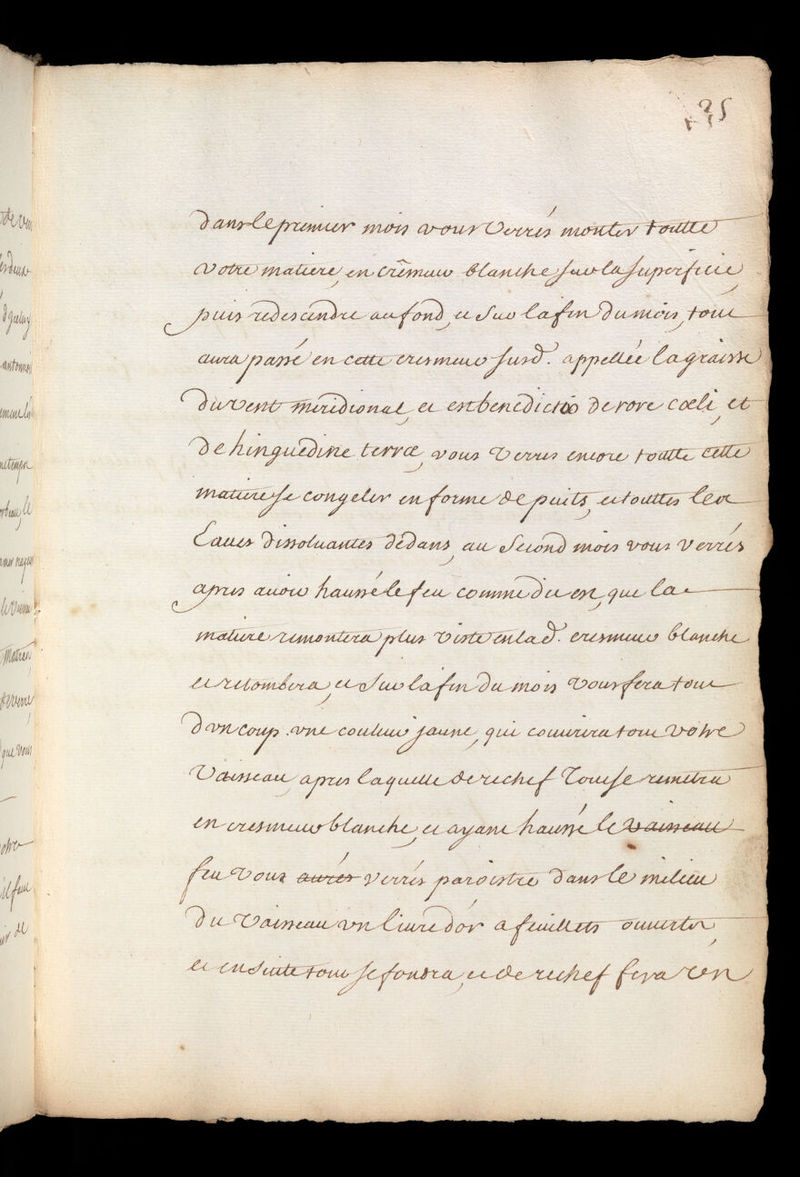 25
dans le premier mois vous verrés monter toutte
votre matiere, en crêmeur blanche sur la superficie,
puis redescendre au fond, et sur la fin du mois, tout
aura passé en cette cresmeur susd. appellée la graisse
du vent meridional, et est benedictio de rore cœli, et
de hinguedine terræ, vous verres encore toutte cette
matiere se congeler en forme de puits, et touttes les
Eaues dissoluantes dedans, au second mois vous verrés
apres auoir haussé le feu comme dit est, que la
matiere remontera plus viste en lad. cresmeur blanche
et retombera, et sur la fin du mois vous fera tout
d'vn coup vne couleur jaune, qui couurira tout votre
Vaisseau, apres laquelle derechef tout se remettra
en cresmeur blanche, et ayant haussé le vaisseau
feu vous aurés verrés paroistre dans le milieu
du vaisseau vn liure d'or a feuillets ouuerts,
et ensuite tout se fondra, et derechef fera